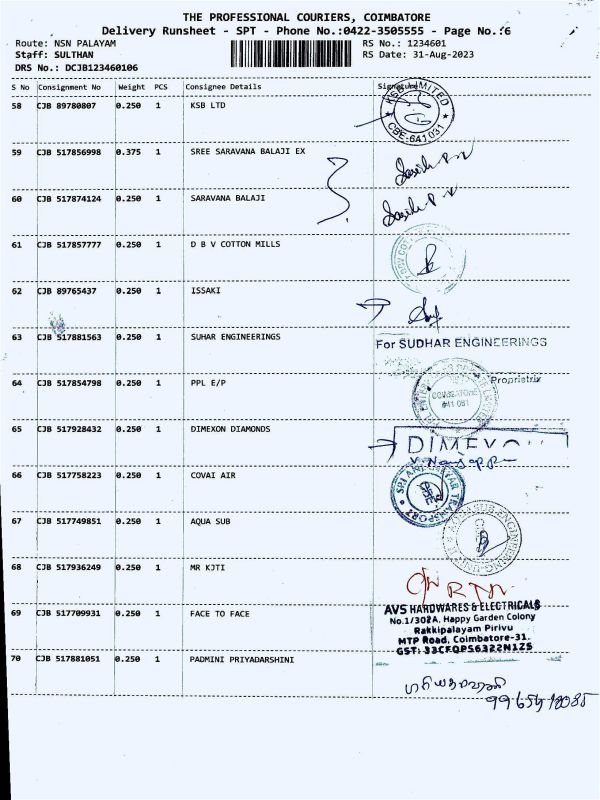 THE PROFESSIONAL COURIERS, COIMBATORE
Delivery Runsheet - SPT - Phone No.:0422-3505555 - Page No.:6
Route: NSN PALAYAM
RS No.: 1234601
Staff: SULTHAN
RS Date: 31-Aug-2023
DRS No.: DCJB123460106
S No Consignment No Weight PCS Consignee Details Signature
58 CJB 89780807 0.250 1 KSB LTD
KSB LIMITED
CBE-641 031
59 CJB 517856998 0.375 1 SREE SARAVANA BALAJI EX
60 CJB 517874124 0.250 1 SARAVANA BALAJI
61 CJB 517857777 0.250 1 D B V COTTON MILLS
62 CJB 89765437 0.250 1 ISSAKI
63 CJB 517881563 0.250 1 SUHAR ENGINEERINGS
For SUDHAR ENGINEERINGS
Proprietrix
64 CJB 517854798 0.250 1 PPL E/P
COIMBATORE
641 031
65 CJB 517928432 0.250 1 DIMEXON DIAMONDS
66 CJB 517758223 0.250 1 COVAI AIR
TRANSPORT
CBE
67 CJB 517749851 0.250 1 AQUA SUB
AQUASUB ENGINEERING
68 CJB 517936249 0.250 1 MR KJTI
69 CJB 517709931 0.250 1 FACE TO FACE
AVS HARDWARES & ELECTRICALS
No.1/302A, Happy Garden Colony
Rakkipalayam Pirivu
MTP Road, Coimbatore-31.
GST: 33CFQPS6322N1Z5
70 CJB 517881051 0.250 1 PADMINI PRIYADARSHINI